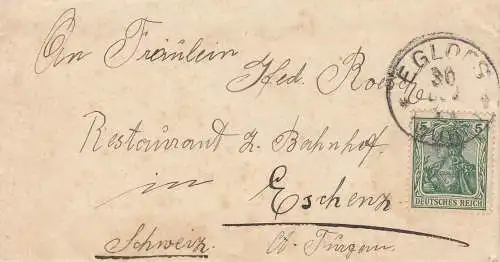 An Fräulein
Hed.
Restaurant z. Bahnhof.
in
Eschenz
Schweiz. Ct. Türgau.
EGLOFS
30
DEZ
5
DEUTSCHES REICH